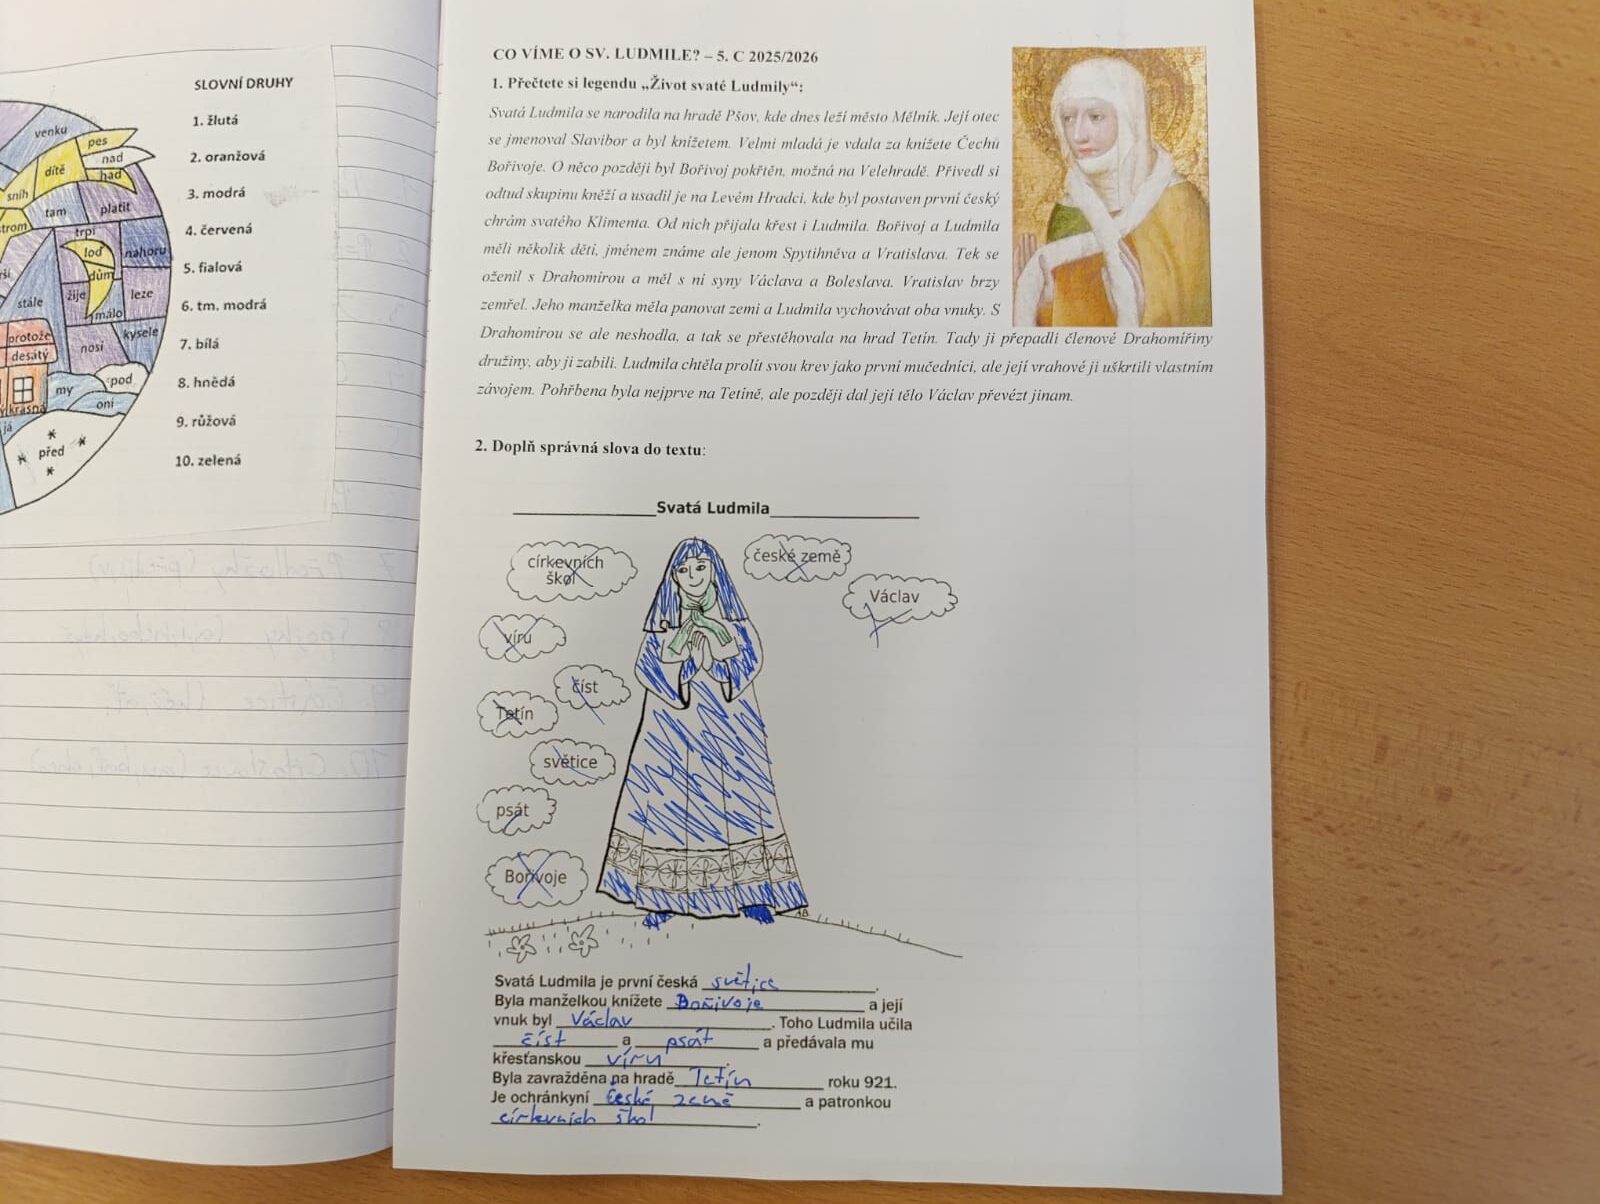 venku
pes
nad
had
dítě
sníh
tam
platit
strom
trpí
loď
nahoru
dům
žije
leze
stále
málo
kysele
protože
nosí
desátý
my
pod
krásná
oni
já
před
SLOVNÍ DRUHY
1. žlutá
2. oranžová
3. modrá
4. červená
5. fialová
6. tm. modrá
7. bílá
8. hnědá
9. růžová
10. zelená
CO VÍME O SV. LUDMILE? – 5. C 2025/2026
1. Přečtete si legendu „Život svaté Ludmily“:
Svatá Ludmila se narodila na hradě Pšov, kde dnes leží město Mělník. Její otec
se jmenoval Slavibor a byl knížetem. Velmi mladá je vdala za knížete Čechů
Bořivoje. O něco později byl Bořivoj pokřtěn, možná na Velehradě. Přivedl si
odtud skupinu kněží a usadil je na Levém Hradci, kde byl postaven první český
chrám svatého Klimenta. Od nich přijala křest i Ludmila. Bořivoj a Ludmila
měli několik dětí, jménem známe ale jenom Spytihněva a Vratislava. Tek se
oženil s Drahomírou a měl s ní syny Václava a Boleslava. Vratislav brzy
zemřel. Jeho manželka měla panovat zemi a Ludmila vychovávat oba vnuky. S
Drahomírou se ale neshodla, a tak se přestěhovala na hrad Tetín. Tady ji přepadli členové Drahomířiny
družiny, aby ji zabili. Ludmila chtěla prolít svou krev jako první mučedníci, ale její vrahové ji uškrtili vlastním
závojem. Pohřbena byla nejprve na Tetíně, ale později dal její tělo Václav převézt jinam.
2. Doplň správná slova do textu:
Svatá Ludmila
církevních
škol
české země
Václav
víru
číst
Tetín
světice
psát
Bořivoje
Svatá Ludmila je první česká světice.
Byla manželkou knížete Bořivoje a její
vnuk byl Václav. Toho Ludmila učila
číst a psát a předávala mu
křesťanskou víru.
Byla zavražděna na hradě Tetín roku 921.
Je ochránkyní České země a patronkou
církevních škol.